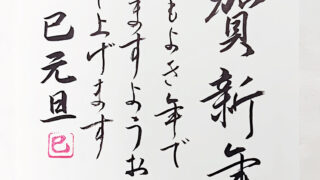 賀新年
もよき年で
ますようお
し上げます
巳元旦
巳